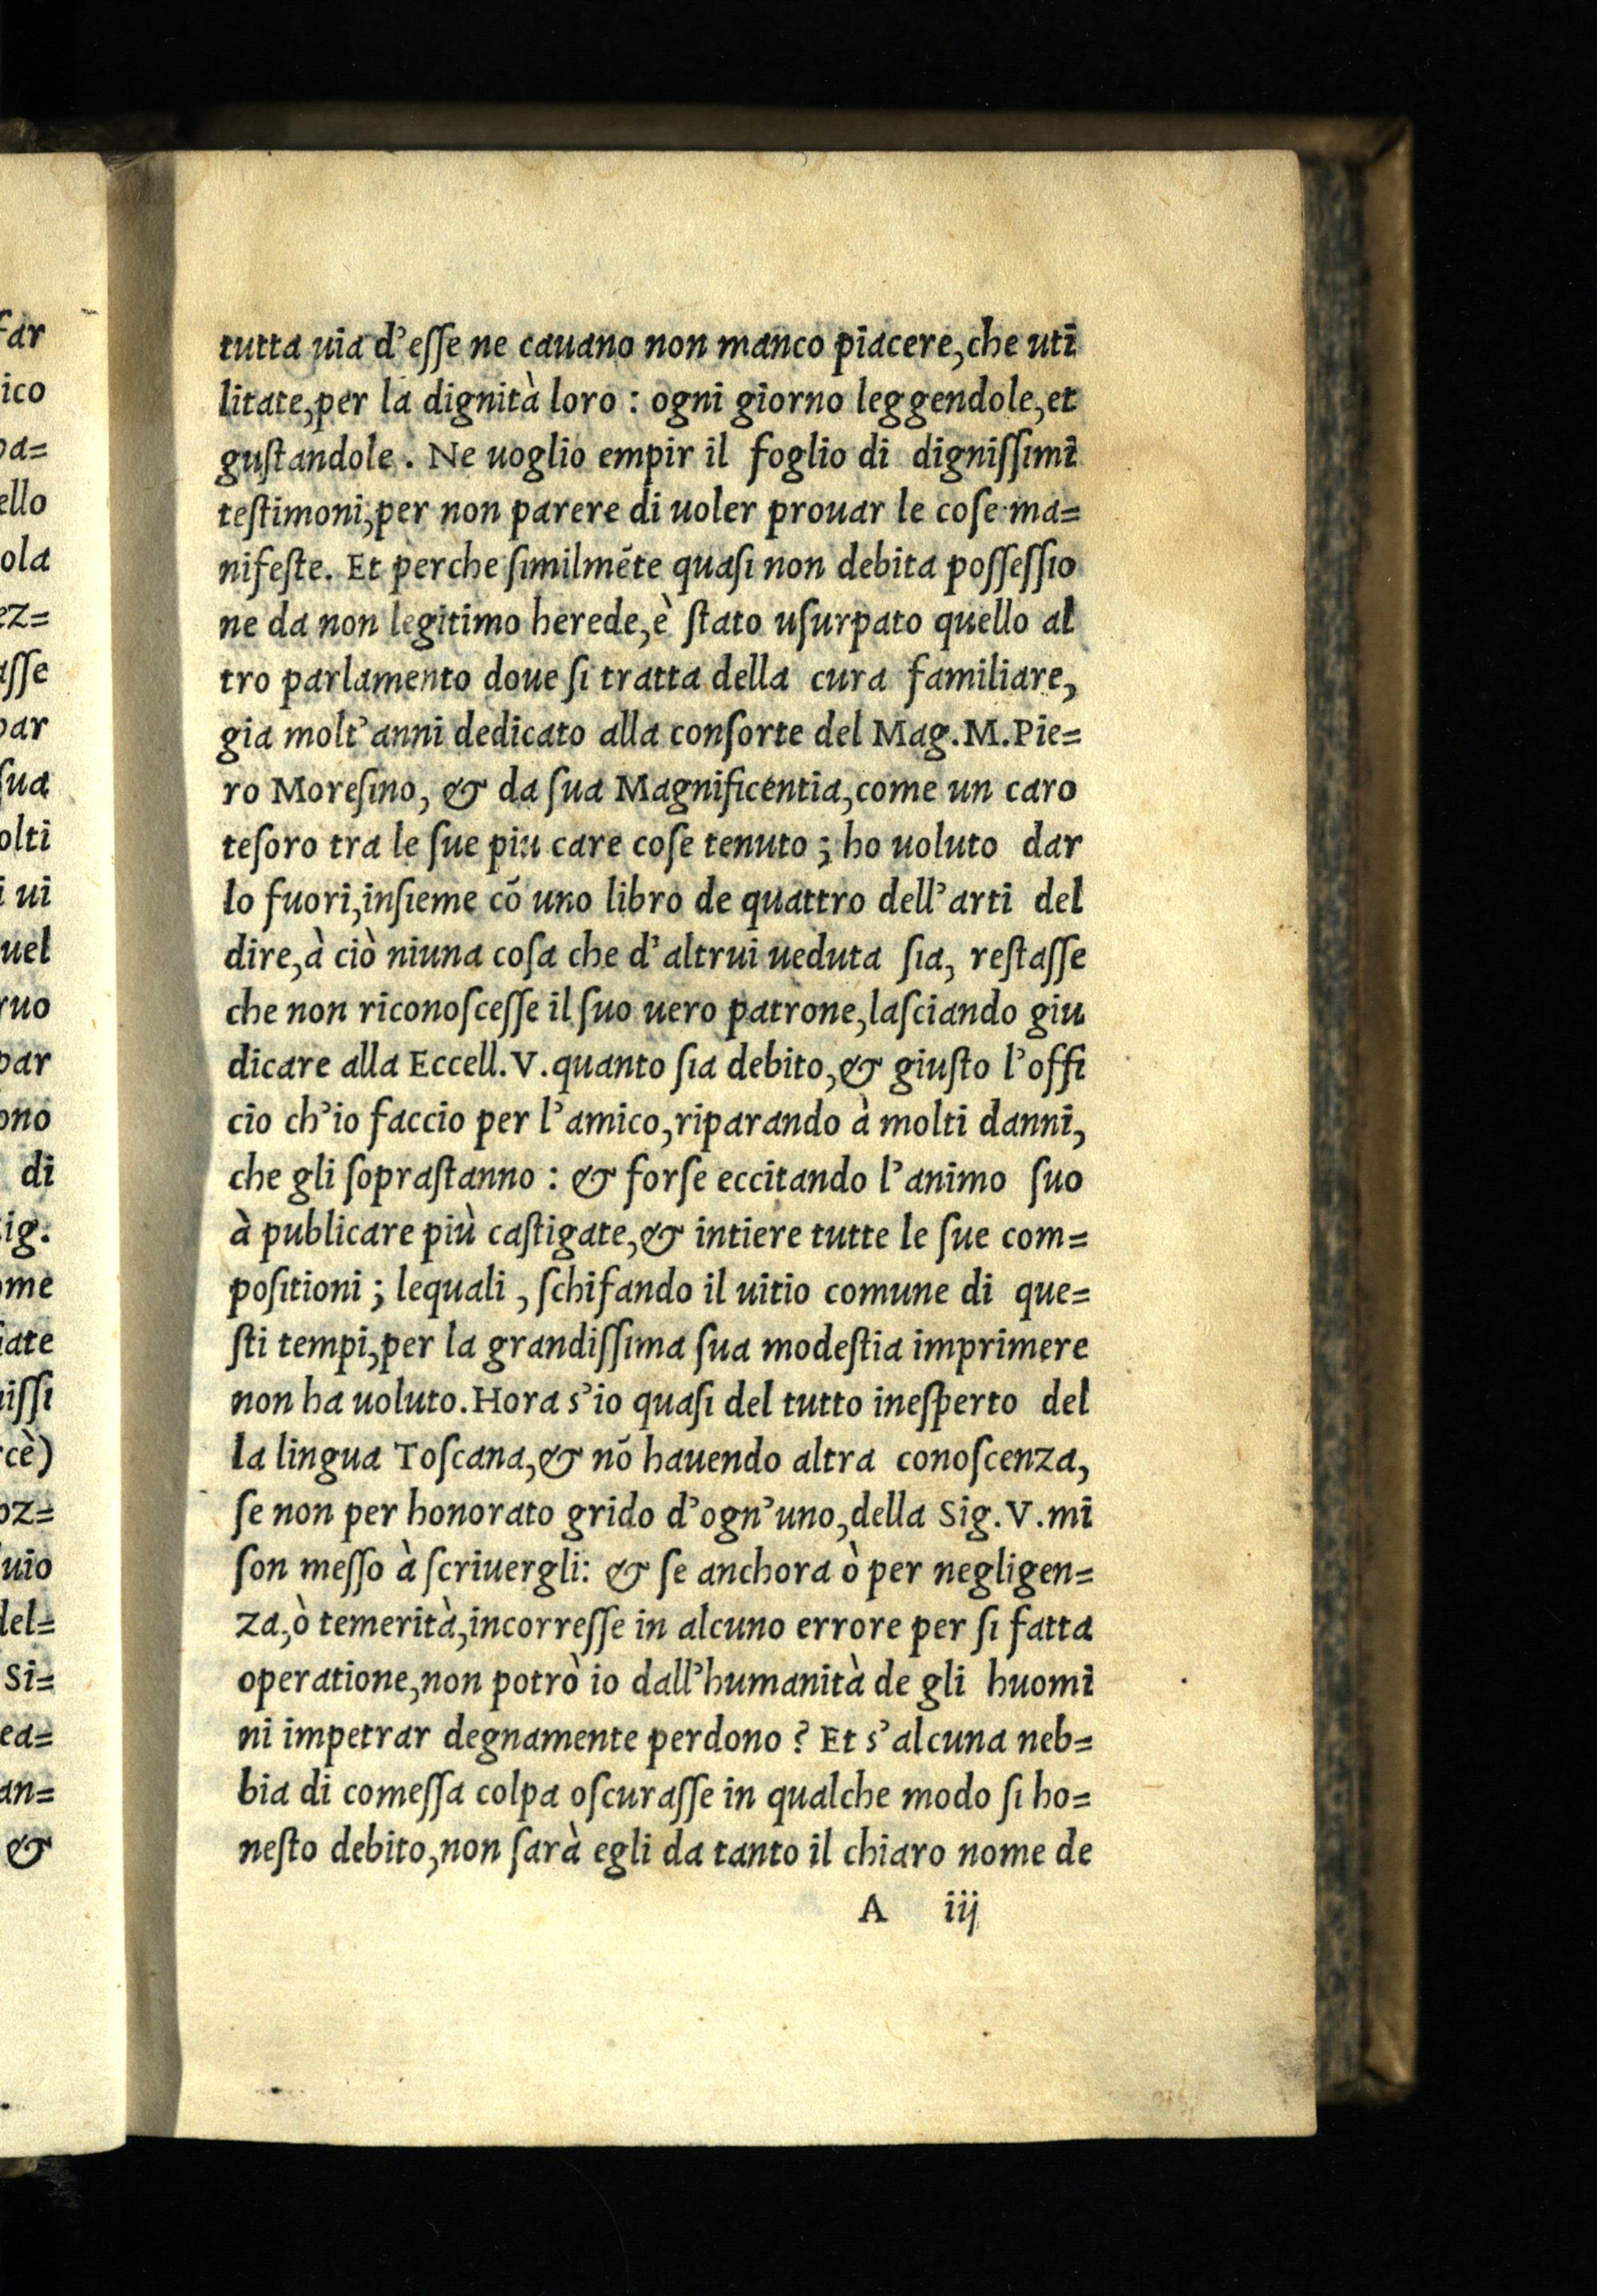 tutta uia d'eſſe ne cauano non manco piacere,che uti
litate,per la dignità loro : ogni giorno leggendole,et
guſtandole . Ne uoglio empir il foglio di digniſſimi
teſtimoni,per non parere di uoler prouar le coſe ma=
nifeſte. Et perche ſimilmẽte quaſi non debita poſſeſſio
ne da non legitimo herede,è ſtato uſurpato quello al
tro parlamento doue ſi tratta della cura familiare,
gia molt'anni dedicato alla conſorte del Mag.M.Pie=
ro Moreſino, & da ſua Magnificentia,come un caro
teſoro tra le ſue piu care coſe tenuto ; ho uoluto dar
lo fuori,inſieme cõ uno libro de quattro dell'arti del
dire,à ciò niuna coſa che d'altrui ueduta ſia, reſtaſſe
che non riconoſceſſe il ſuo uero patrone,laſciando giu
dicare alla Eccell.V.quanto ſia debito,& giuſto l'offi
cio ch'io faccio per l'amico,riparando à molti danni,
che gli ſopraſtanno : & forſe eccitando l'animo ſuo
à publicare più caſtigate,& intiere tutte le ſue com=
poſitioni ; lequali , ſchifando il uitio comune di que=
ſti tempi,per la grandiſſima ſua modeſtia imprimere
non ha uoluto.Hora s'io quaſi del tutto ineſperto del
la lingua Toſcana,& nõ hauendo altra conoſcenza,
ſe non per honorato grido d'ogn'uno,della Sig.V.mi
ſon meſſo à ſcriuergli: & ſe anchora ò per negligen=
za,ò temerità,incorreſſe in alcuno errore per ſi fatta
operatione,non potrò io dall'humanità de gli huomi
ni impetrar degnamente perdono ? Et s'alcuna neb=
bia di comeſſa colpa oſcuraſſe in qualche modo ſi ho=
neſto debito,non ſarà egli da tanto il chiaro nome de
A iij